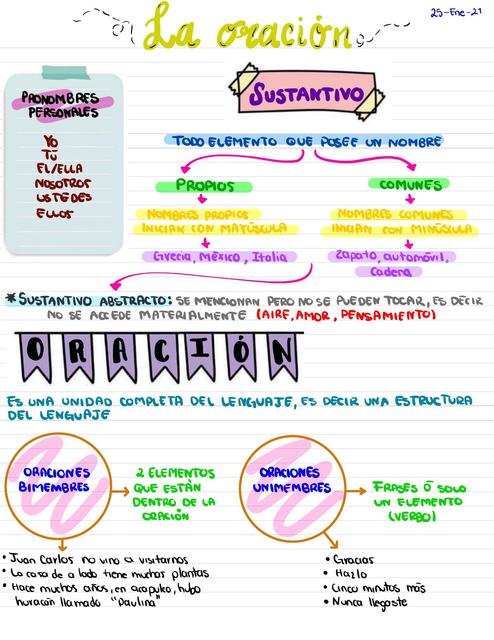 La oración
25-Ene-21
PRONOMBRES
PERSONALES
Yo
Tú
EL/ELLA
NOSOTROS
USTEDES
ELLOS
SUSTANTIVO
TODO ELEMENTO QUE POSEE UN NOMBRE
PROPIOS
NOMBRES PROPIOS
INICIAN CON MAYÚSCULA
Grecia, México, Italia
COMUNES
NOMBRES COMUNES
INICIAN CON MINÚSCULA
Zapato, automóvil,
Cadena
*SUSTANTIVO ABSTRACTO: SE MENCIONAN PERO NO SE PUEDEN TOCAR, ES DECIR
NO SE ACCEDE MATERIALMENTE (AIRE, AMOR, PENSAMIENTO)
ORACIÓN
ES UNA UNIDAD COMPLETA DEL LENGUAJE, ES DECIR UNA ESTRUCTURA
DEL LENGUAJE
ORACIONES
BIMEMBRES
2 ELEMENTOS
QUE ESTÁN
DENTRO DE LA
ORACIÓN
• Juan Carlos no vino a visitarnos
• La casa de a lado tiene muchas plantas
• Hace muchos años, en acapulco, hubo
huracán llamado "Paulina"
ORACIONES
UNIMEMBRES
FRASES Ó SOLO
UN ELEMENTO
(VERBO)
• Gracias
• Hazlo
• Cinco minutos más
• Nunca llegaste